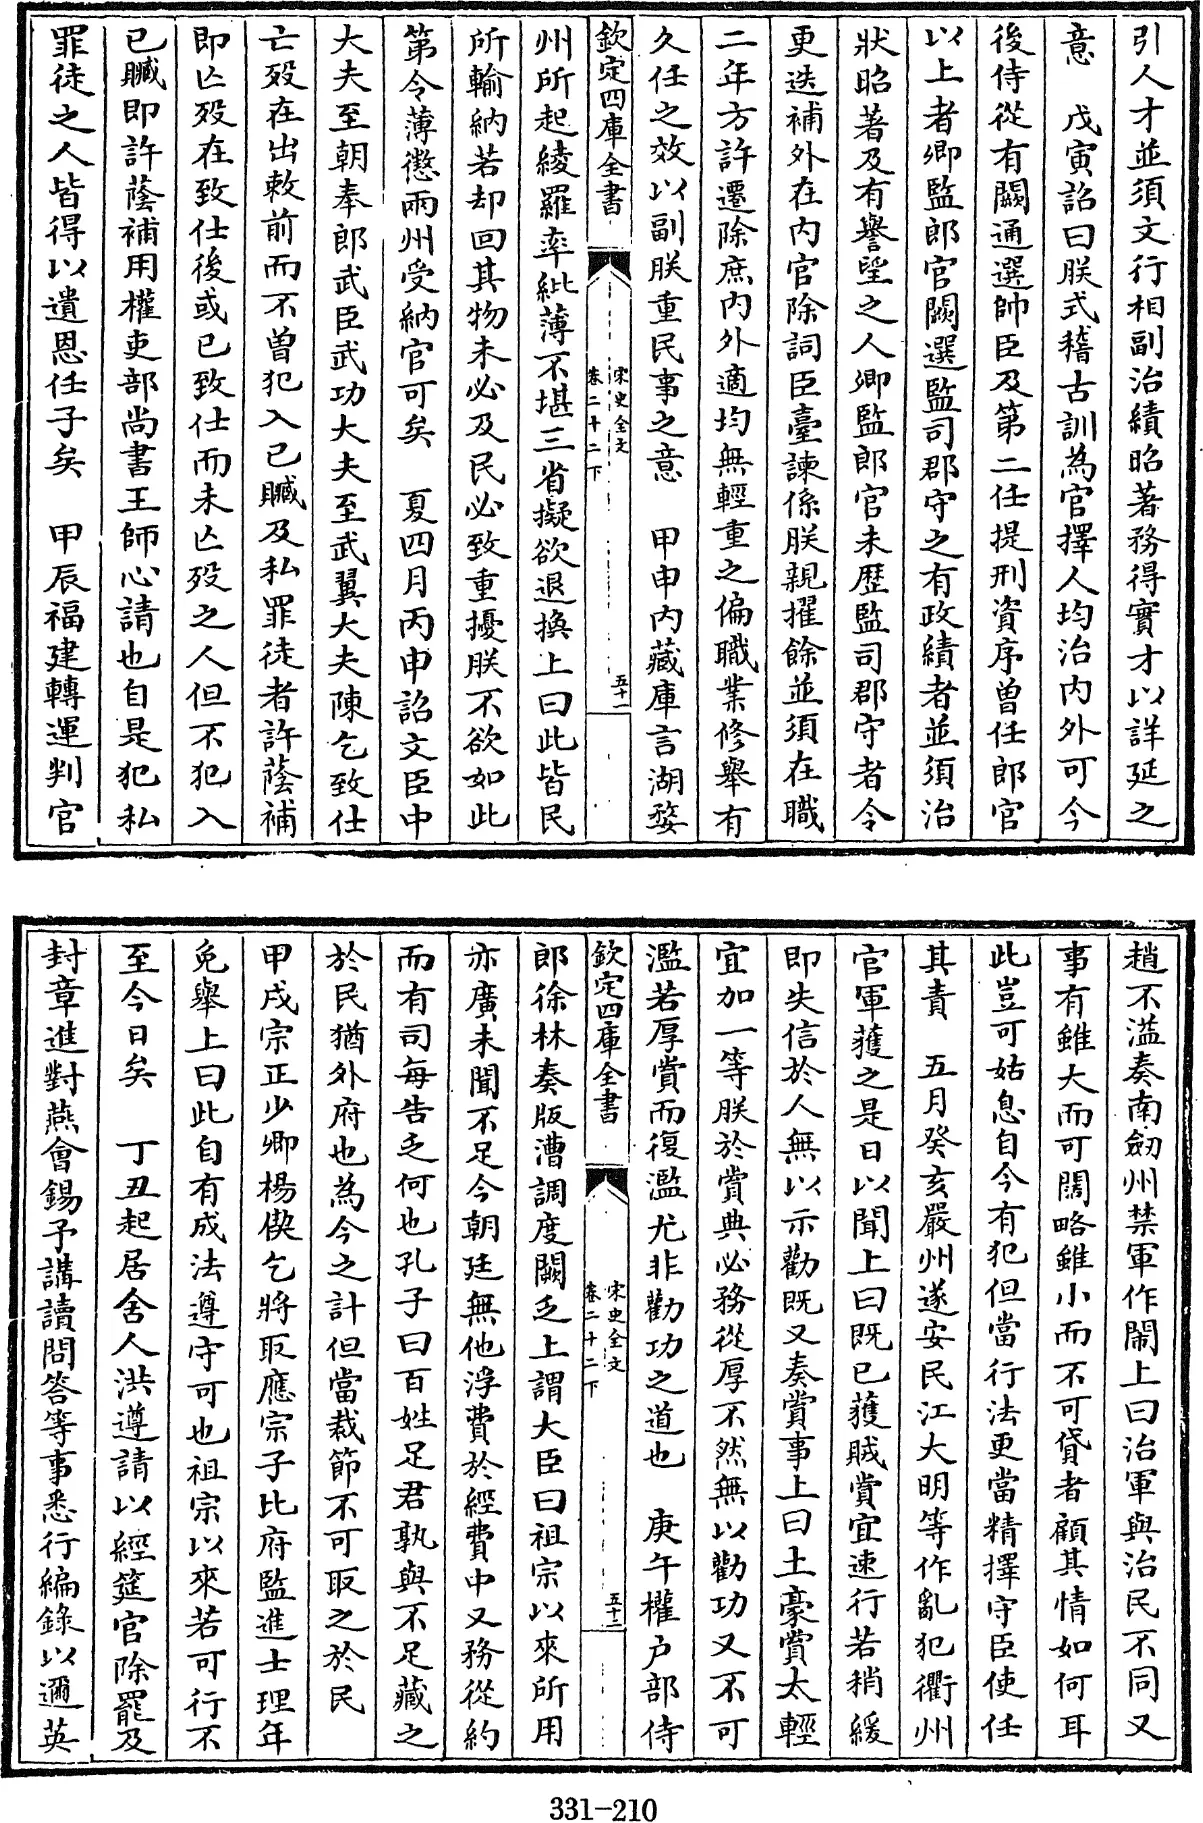 引人才並須文行相副治績昭著務得實才以詳延之
意　戊寅詔曰朕式稽古訓為官擇人均治内外可今
後侍從有闕通選帥臣及第二任提刑資序曽任郎官
以上者卿監郎官闕選監司郡守之有政績者並須治
狀昭著及有譽望之人卿監郎官未歴監司郡守者令
更迭補外在内官除詞臣臺諫係朕親擢餘並須在職
二年方許遷除庶内外適均無輕重之偏職業修舉有
久任之效以副朕重民事之意　甲申内藏庫言湖婺
欽定四庫全書
宋史全文
卷二十二下
五十一
州所起綾羅率紕薄不堪三省擬欲退換上曰此皆民
所輸納若却回其物未必及民必致重擾朕不欲如此
第令薄懲兩州受納官可矣　夏四月丙申詔文臣中
大夫至朝奉郎武臣武功大夫至武翼大夫陳乞致仕
亡歿在出敕前而不曽犯入己贓及私罪徒者許蔭補
即亡歿在致仕後或已致仕而未亡歿之人但不犯入
已贓即許蔭補用權吏部尚書王師心請也自是犯私
罪徒之人皆得以遺恩任子矣　甲辰福建轉運判官
趙不溢奏南劒州禁軍作閙上曰治軍與治民不同又
事有雖大而可闊略雖小而不可貸者顧其情如何耳
此豈可姑息自今有犯但當行法更當精擇守臣使任
其責　五月癸亥嚴州遂安民江大明等作亂犯衢州
官軍獲之是日以聞上曰既已獲賊賞宜速行若稍緩
即失信於人無以示勸既又奏賞事上曰土豪賞太輕
宜加一等朕於賞典必務從厚不然無以勸功又不可
濫若厚賞而復濫尤非勸功之道也　庚午權户部侍
欽定四庫全書
宋史全文
卷二十二下
五十二
郎徐林奏版漕調度闕乏上謂大臣曰祖宗以來所用
亦廣未聞不足今朝廷無他浮費於經費中又務從約
而有司每告乏何也孔子曰百姓足君孰與不足藏之
於民猶外府也為今之計但當裁節不可取之於民
甲戌宗正少卿楊偰乞將取應宗子比府監進士理年
免舉上曰此自有成法遵守可也祖宗以來若可行不
至今日矣　丁丑起居舍人洪遵請以經筵官除罷及
封章進對燕會錫予講讀問答等事悉行編錄以邇英
331-210